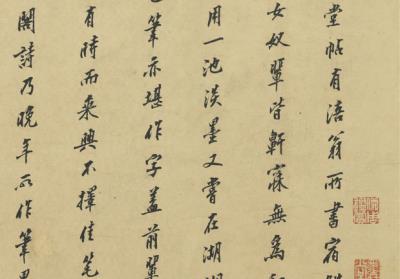 堂帖有涪翁所書宿
女奴輩皆軒寐無為
用一池淡墨又嘗在湖
筆亦堪作字蓋前輩
有時而來興不擇佳笔
閣詩乃晚年所作筆